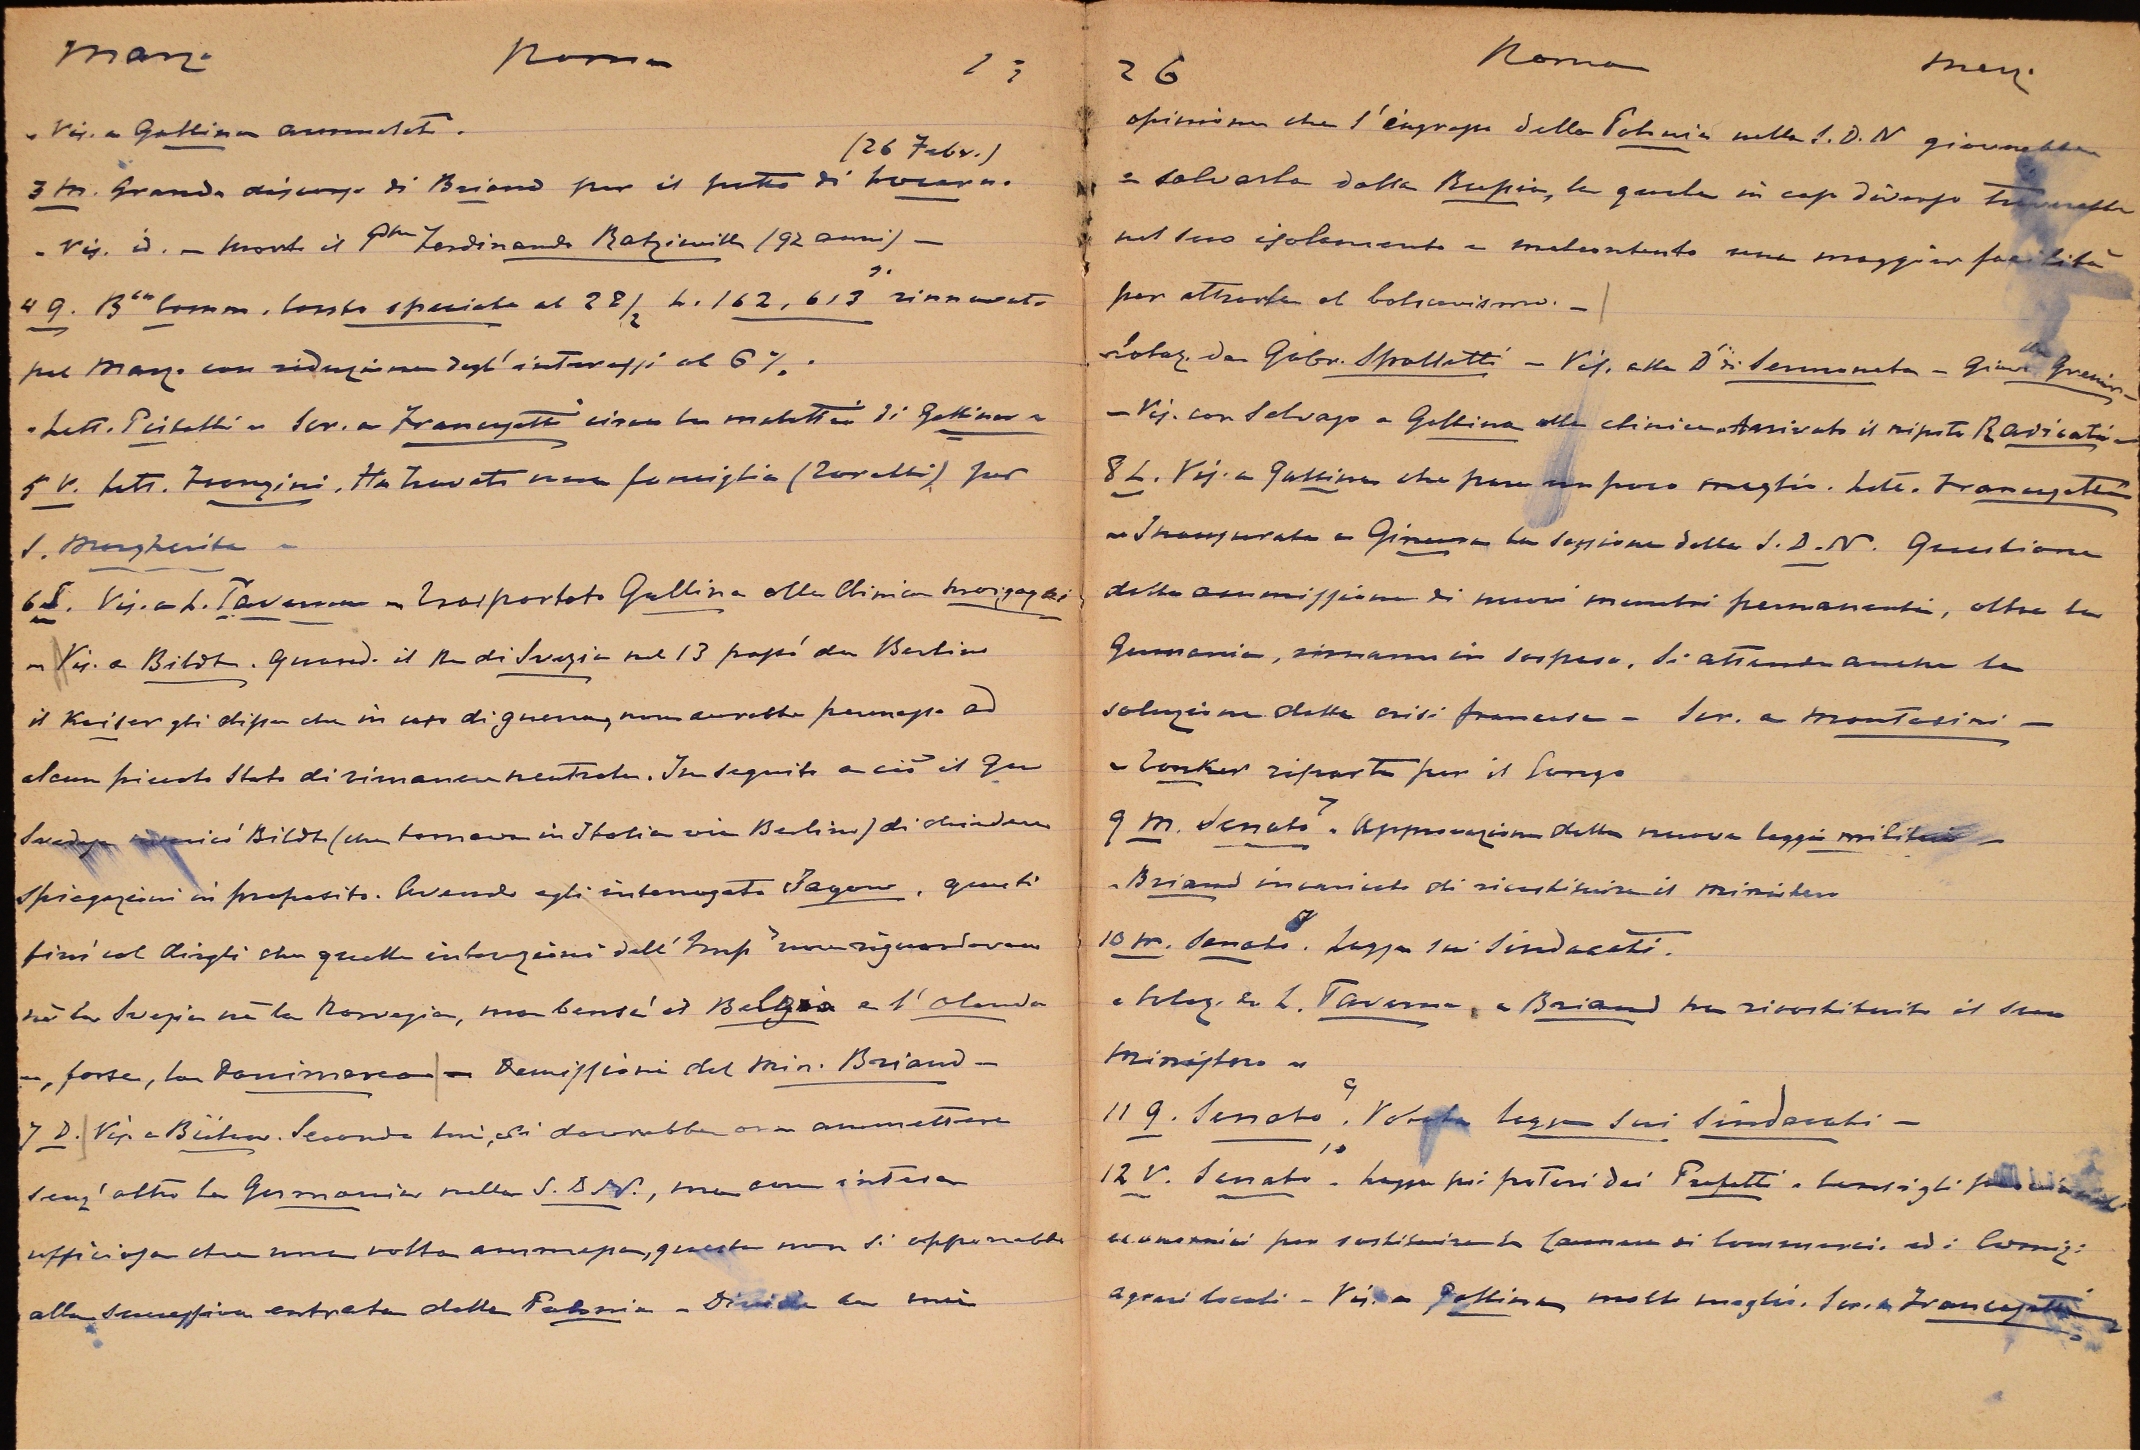 Marzo Roma
- Vis. a Gallina ammalato.
(26 Febr.)
3 M. Grande discorso di Briand per il patto di Locarno.
- Vis. id. - Morto il Pre Ferdinando Radziwill (92 anni) -
4 G. Bca Comm. Conto speciale al 28/2 L. 162,613 rinnovato
pel Marzo con riduzione degl'interessi al 6%.
- Lett. Pisatelli - Scr. a Francesetti circa la malattia di Gallina -
5 V. Lett. Franzini. Ha trovato una famiglia (Zoralli) per
S. Margherita -
6 S. Vis. a L. Taverna - Trasportato Gallina alla Clinica Morgagni
- Vis. a Bildt. Quando il Re di Svezia nel 13 passò da Berlino
il Kaiser gli disse che in caso di guerra, non avrebbe permesso ad
alcun piccolo Stato di rimanere neutrale. In seguito a ciò il Gov
Svedese incaricò Bildt (che tornava in Italia via Berlino) di chiedere
spiegazioni in proposito. Avendo egli interrogato Jagow, questi
finì col dirgli che quelle intenzioni dell'Imp. non riguardavano
nè la Svezia nè la Norvegia, ma bensì il Belgio e l'Olanda
e, forse, la Danimarca - Demissioni del Min. Briand -
7 D. Vis. a Bülow. Secondo lui, si dovrebbe ora ammettere
senz'altro la Germania nella S.D.N., ma con intesa
ufficiosa che una volta ammessa, questa non si opporrebbe
alla successiva entrata della Polonia - Divide la mia
26 Roma Marz.
opinione che l'ingresso della Polonia nella S.D.N gioverebbe
a salvarla dalla Russia, la quale in caso diverso troverebbe
nel suo isolamento e malcontento una maggior facilità
per attrarla al bolscevismo. -
Colaz. da Gabr. Spalletti - Vis. alla Dssa di Sermoneta -
- Vis. con Selvago a Gallina alla clinica. Arrivato il nipote Radicati -
8 L. Vis. a Gallina che pare un poco meglio. Lett. Francesetti
- Inaugurata a Ginevra la sessione della S.D.N. Questione
della ammissione di nuovi membri permanenti, oltre la
Germania, rimane in sospeso. Si attende anche la
soluzione della crisi francese - Scr. a Montesini -
- Zonker riparte per il Congo
9 M. Senato 7. Approvazione della nuova legge militare -
- Briand incaricato di ricostituire il ministero
10 M. Senato 8. Legge sui Sindacati.
- Colaz. da L. Taverna. - Briand ha ricostituito il suo
Ministero -
11 G. Senato 9. Votata legge sui Sindacati -
12 V. Senato 10 - Legge poi poteri dei Prefetti - Consigli provinciali
economici per sostituire le Camere di Commercio ed i Comizi
agrari locali - Vis. a Gallina, molto meglio. Scr. a Francesetti